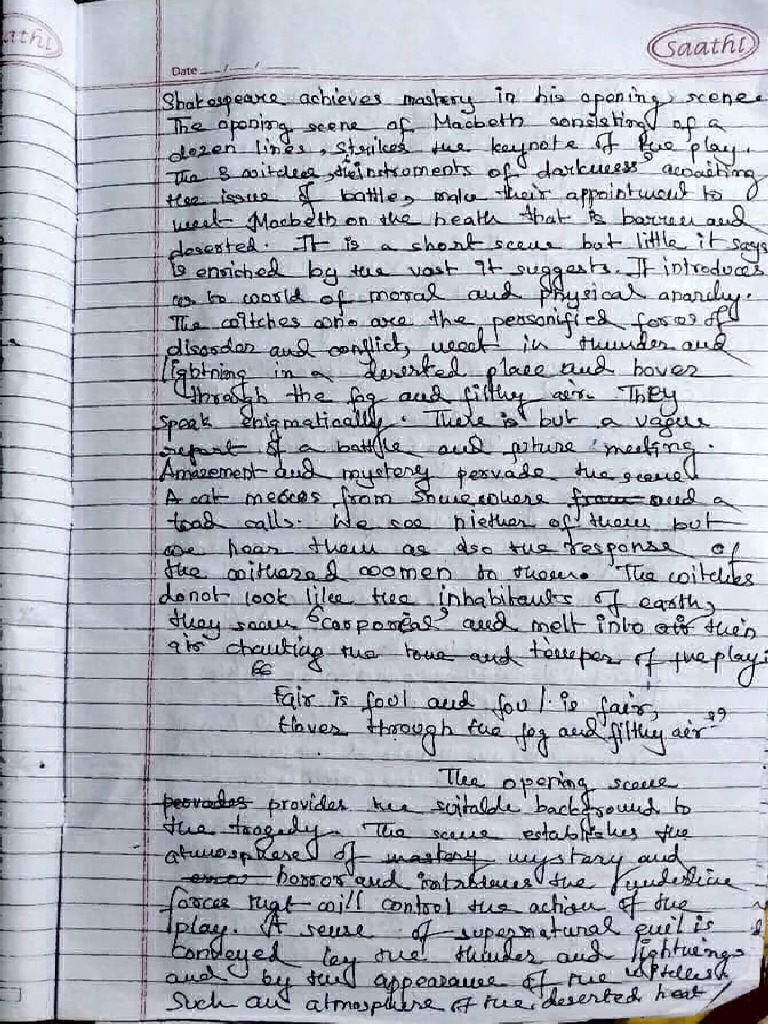 athi
saathi
Date __/__/____
Shakespeare achieves mastery in his opening scene.
The opening scene of Macbeth consisting of a
dozen lines, strikes the keynote of the play.
The 3 witches, the instruments of darkness' awaiting
the issue of battle, make their appointment to
meet Macbeth on the heath that is barren and
deserted. It is a short scene but little it says
is enriched by the vast it suggests. It introduces
us to world of moral and physical anarchy.
The witches who are the personified force of
disorder and conflict, meet in thunder and
lightning in a deserted place and hover
through the fog and filthy air. They
speak enigmatically. There is but a vague
report of a battle and future meeting.
Amazement and mystery pervade the scene.
A cat mewes from somewhere from and a
toad calls. We see niether of them but
we hear them as also the response of
the withered women to them. The witches
donot look like the inhabitants of earth,
they seem 'corporeal' and melt into air then
air chanting the tone and temper of the play:
"
Fair is foul and foul is fair,
Hover through the fog and filthy air"
The opening scene
pervades provides the suitable background to
the tragedy. The scene establishes the
atmosphere of mastery mystery and
horror and introduces the
forces that will control the action of the
play. A sense of supernatural evil is
conveyed by the thunder and lightnings
and by the appearance of the witches.
Such an atmosphere of the deserted heat/